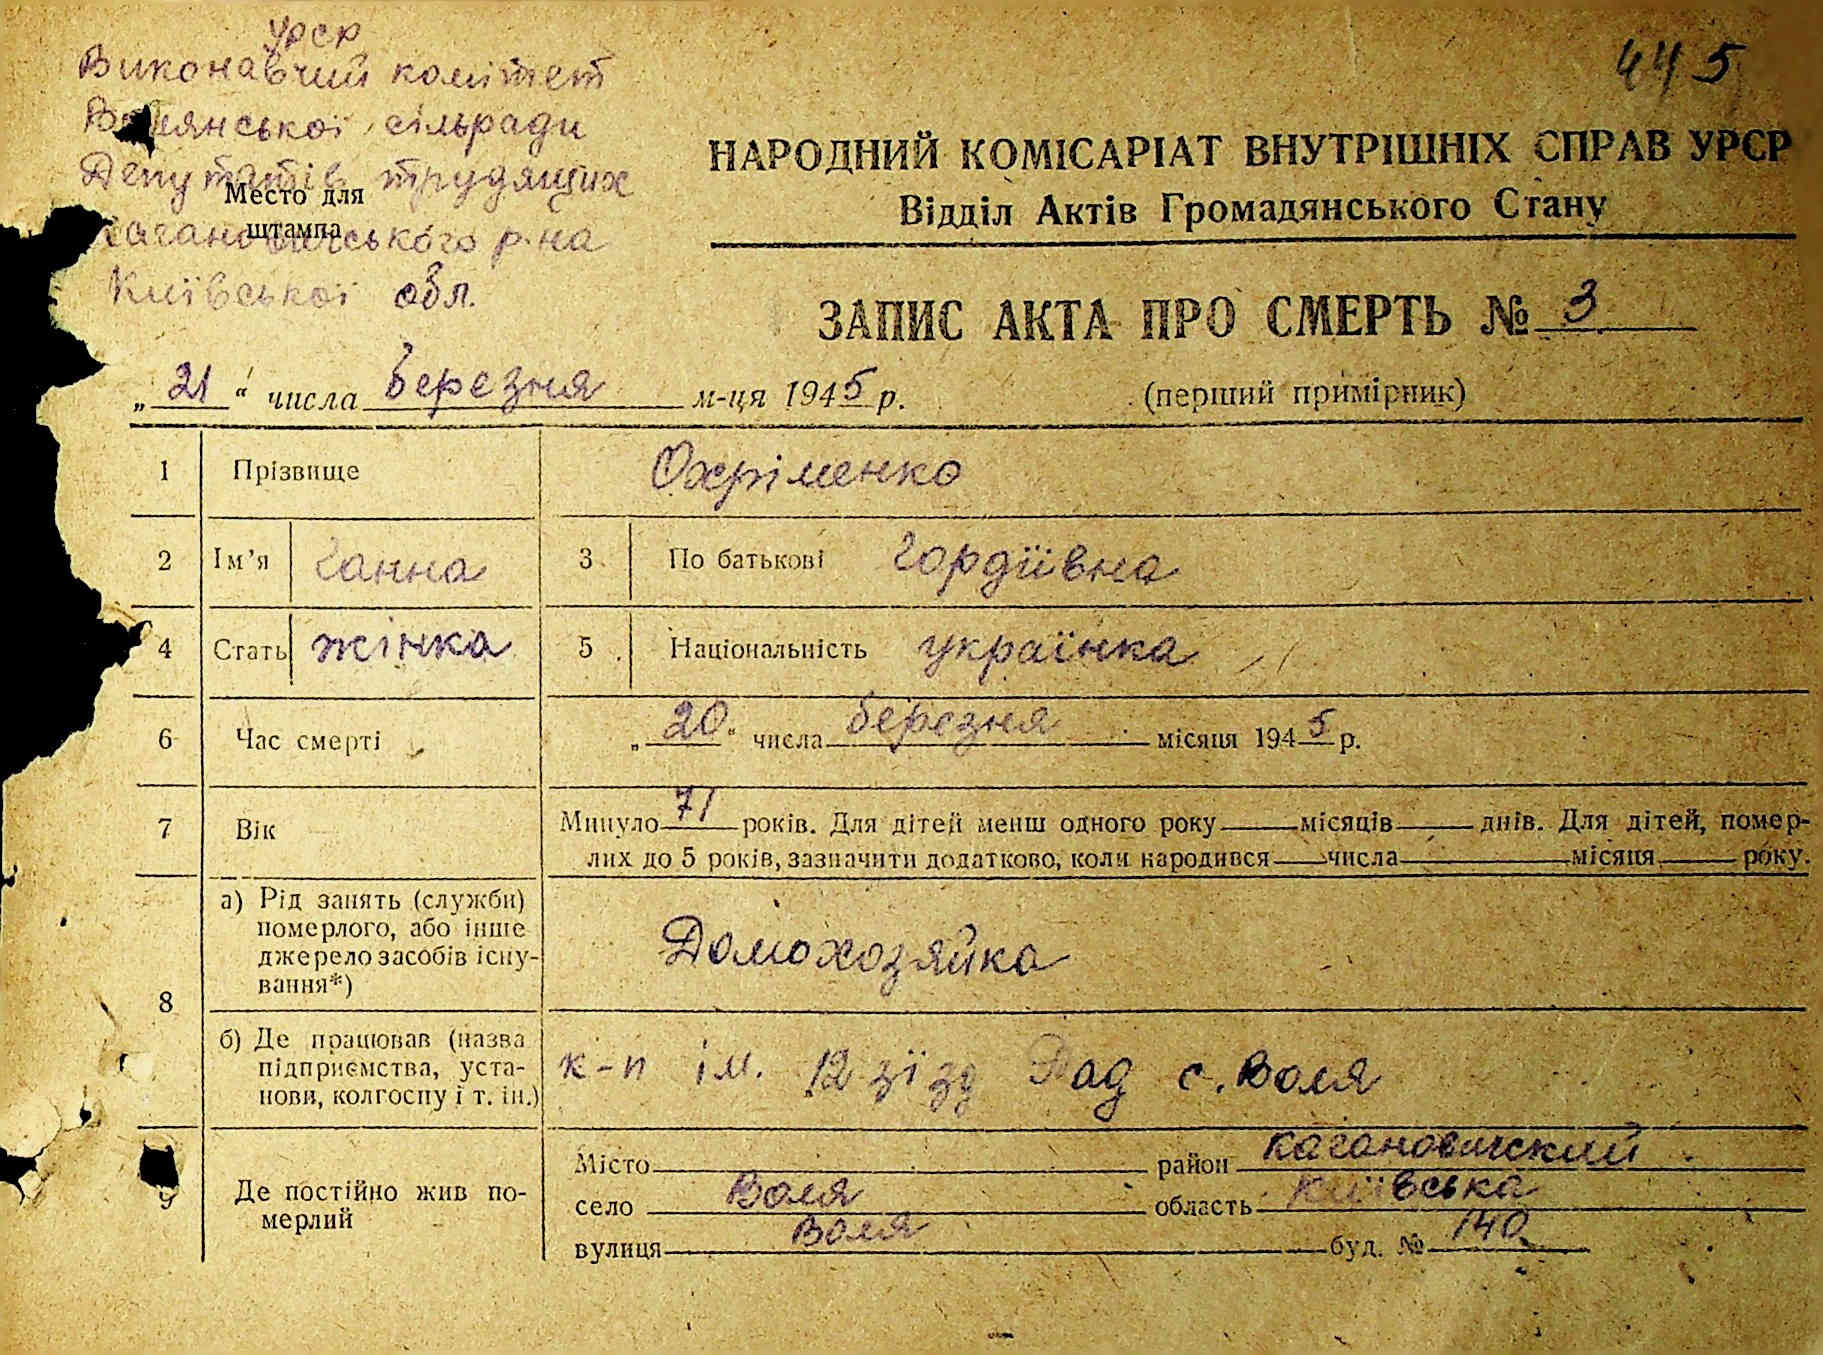 УРСР
Виконавчий комітет
сільради
Депутатів трудящих
Место для
штампа
р-на
Київської обл.
445
НАРОДНИЙ КОМІСАРІАТ ВНУТРІШНІХ СПРАВ УРСР
Відділ Актів Громадянського Стану
ЗАПИС АКТА ПРО СМЕРТЬ № 3
„21“ числа березня м-ця 1945 р.
(перший примірник)
1 Прізвище Охріменко
2 Ім’я Ганна 3 По батькові Гордіївна
4 Стать жінка 5 Національність українка
6 Час смерті „20“ числа березня місяця 1945 р.
7 Вік Минуло 71 років. Для дітей менш одного року місяців днів. Для дітей, помер-
лих до 5 років, зазначити додатково, коли народився числа місяця року.
8 а) Рід занять (служби)
померлого, або інше
джерело засобів існу-
вання*)
Домохозяйка
б) Де працював (назва
підприємства, уста-
нови, колгоспу і т. ін.)
к-п ім. 12 зїзд Рад с. Воля
9 Де постійно жив по-
мерлий
Місто район кагановичский
село Воля область Київська
вулиця Воля буд. № 140